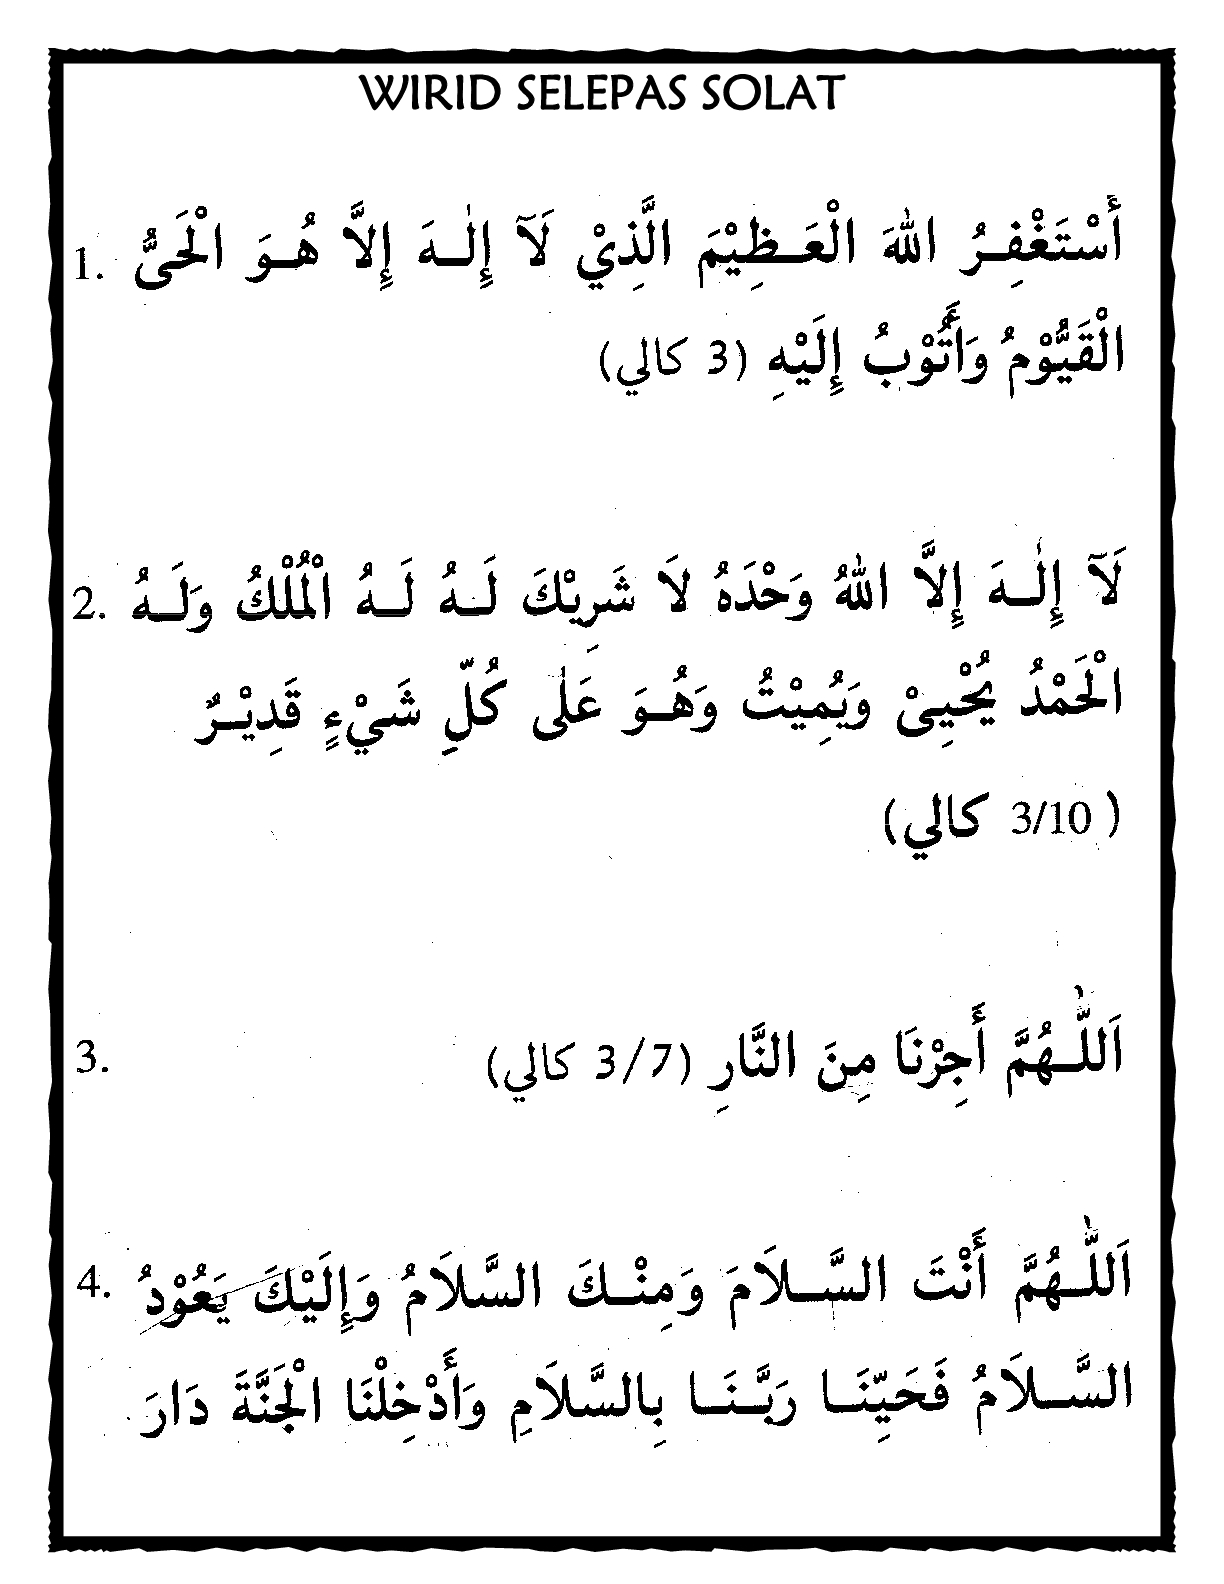 WIRID SELEPAS SOLAT
1. أَسْتَغْفِرُ اللهَ الْعَـظِيْمَ الَّذِيْ لَآ إِلٰـهَ إِلاَّ هُـوَ الْحَىُّ
الْقَيُّوْمُ وَأَتُوْبُ إِلَيْهِ (3 كالي)
2. لَآ إِلٰـهَ إِلاَّ اللهُ وَحْدَهُ لاَ شَرِيْكَ لَـهُ لَـهُ الْمُلْكُ وَلَـهُ
الْحَمْدُ يُحْيِىْ وَيُمِيْتُ وَهُـوَ عَلٰى كُلِّ شَىْءٍ قَدِيْـرٌ
( 3/10 كالي)
3. اَللّٰـهُمَّ أَجِرْنَا مِنَ النَّارِ (3/7 كالي)
4. اَللّٰـهُمَّ أَنْتَ السَّـلاَمَ وَمِنْـكَ السَّلاَمُ وَإِلَيْكَ يَعُوْدُ
السَّـلاَمُ فَحَيِّنَـا رَبَّـنَـا بِالسَّلاَمِ وَأَدْخِلْنَا الْجَنَّةَ دَارَ